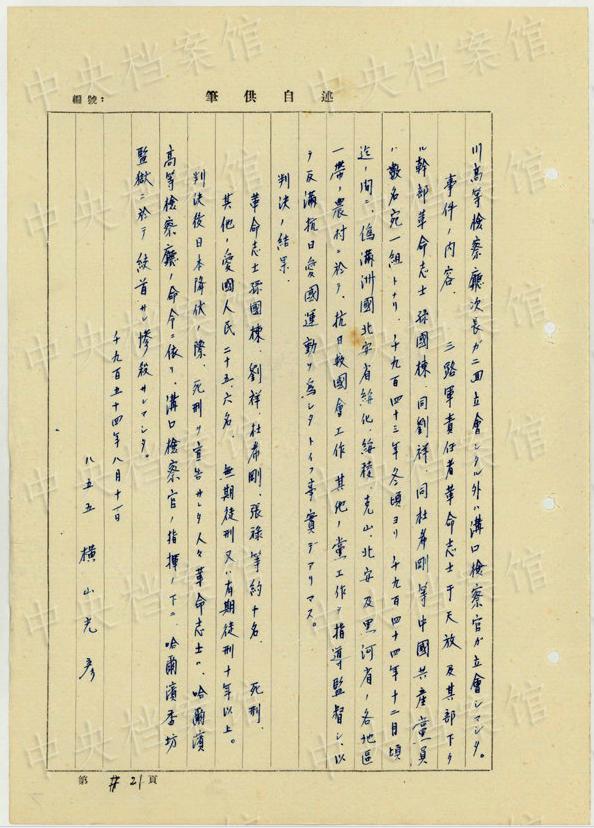 編號:
述自供筆
川高等檢察廳次長ガ二回立會シタル外ハ溝口檢察官ガ立會シマシタ。
事件ノ内容. 三路軍責任者革命志士于天放及其部下タ
ル幹部革命志士孫國棟、同劉祥、同杜希剛等中國共産黨員
ハ數名宛一組トナリ 千九百四十三年冬頃ヨリ 千九百四十四年十二月頃
迄ノ間ニ、偽滿洲國北安省綏化、綏稜、克山、北安及黒河省ノ各地區
一帶ノ農村ニ於テ、抗日救國會工作 其他ノ黨工作ヲ指導監督シ、以
テ反滿抗日愛國運動ヲ為シタトイフ事實デアリマス。
判決ノ結果.
革命志士孫國棟、劉祥、杜希剛、張祿等約十名 死刑.
其他ノ愛國人民二十五六名 無期徒刑又ハ有期徒刑十年以上。
判決後日本降伏ノ際、死刑ヲ宣告サレタ人々革命志士ハ、哈爾濱
高等檢察廳ノ命令ニ依リ、溝口檢察官ノ指揮ノ下ニ 哈爾濱香坊
監獄ニ於テ 絞首サレ慘殺サレマシタ。
千九百五十四年八月十一日
八五五 橫山光彥
第 #21 頁
中央档案馆